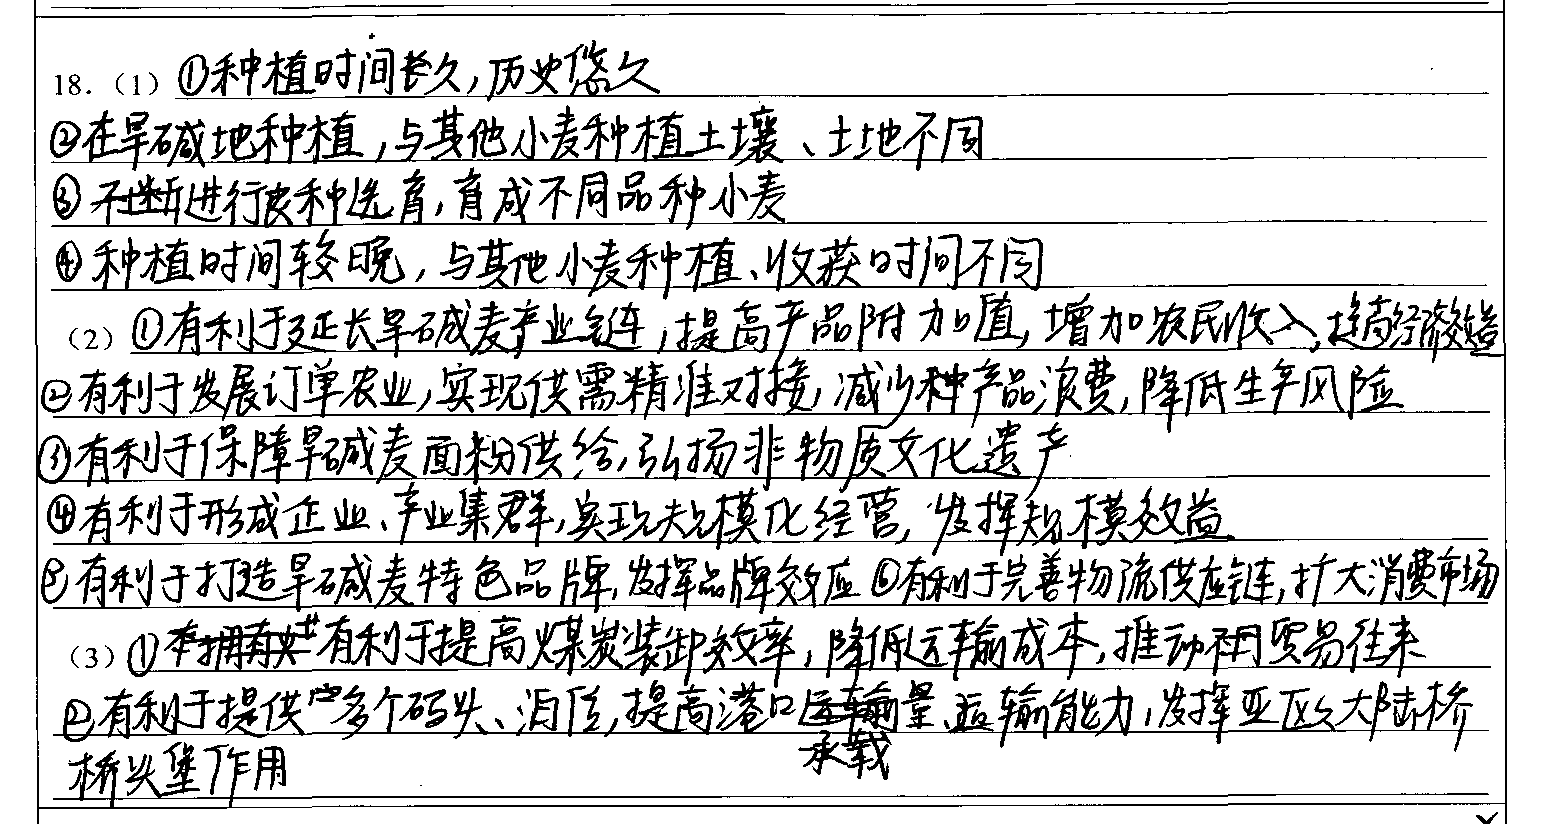 18.（1）①种植时间长久，历史悠久
②在旱碱地种植，与其他小麦种植土壤、土地不同
③不断进行良种选育，育成不同品种小麦
④种植时间较晚，与其他小麦种植、收获时间不同
（2）①有利于延长旱碱麦产业链，提高产品附加值，增加农民收入，提高经济效益
②有利于发展订单农业，实现供需精准对接，减少种产品浪费，降低生产风险
③有利于保障旱碱麦面粉供给，弘扬非物质文化遗产
④有利于形成企业、产业集群，实现规模化经营，发挥规模效益
⑤有利于打造旱碱麦特色品牌，发挥品牌效应⑥有利于完善物流供应链，扩大消费市场
（3）①有利于提高煤炭装卸效率，降低运输成本，推动不同贸易往来
②有利于提供多个码头、泊位，提高港口承载量、运输能力，发挥亚欧大陆桥
桥头堡作用